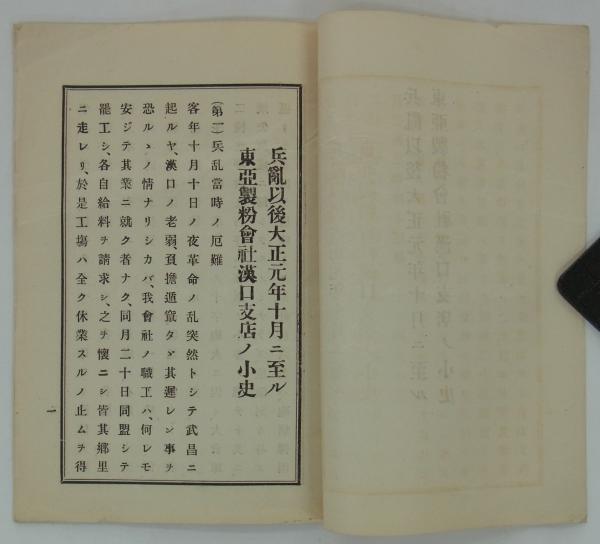 兵亂以後大正元年十月ニ至ル
東亞製粉會社漢口支店ノ小史
(第一)兵乱當時ノ厄難
客年十月十日ノ夜革命ノ乱突然トシテ武昌ニ
起ルヤ、漢口ノ老弱、負擔遁竄タヾ其遲レン事ヲ
恐ルヽノ情ナリシカバ、我會社ノ職工ハ、何レモ
安ジテ其業ニ就ク者ナク、同月二十日同盟シテ
罷工シ、各自給料ヲ請求シ、之ヲ懷ニシ皆其鄉里
ニ走レリ、於是工塲ハ全ク休業スルノ止ムヲ得
一